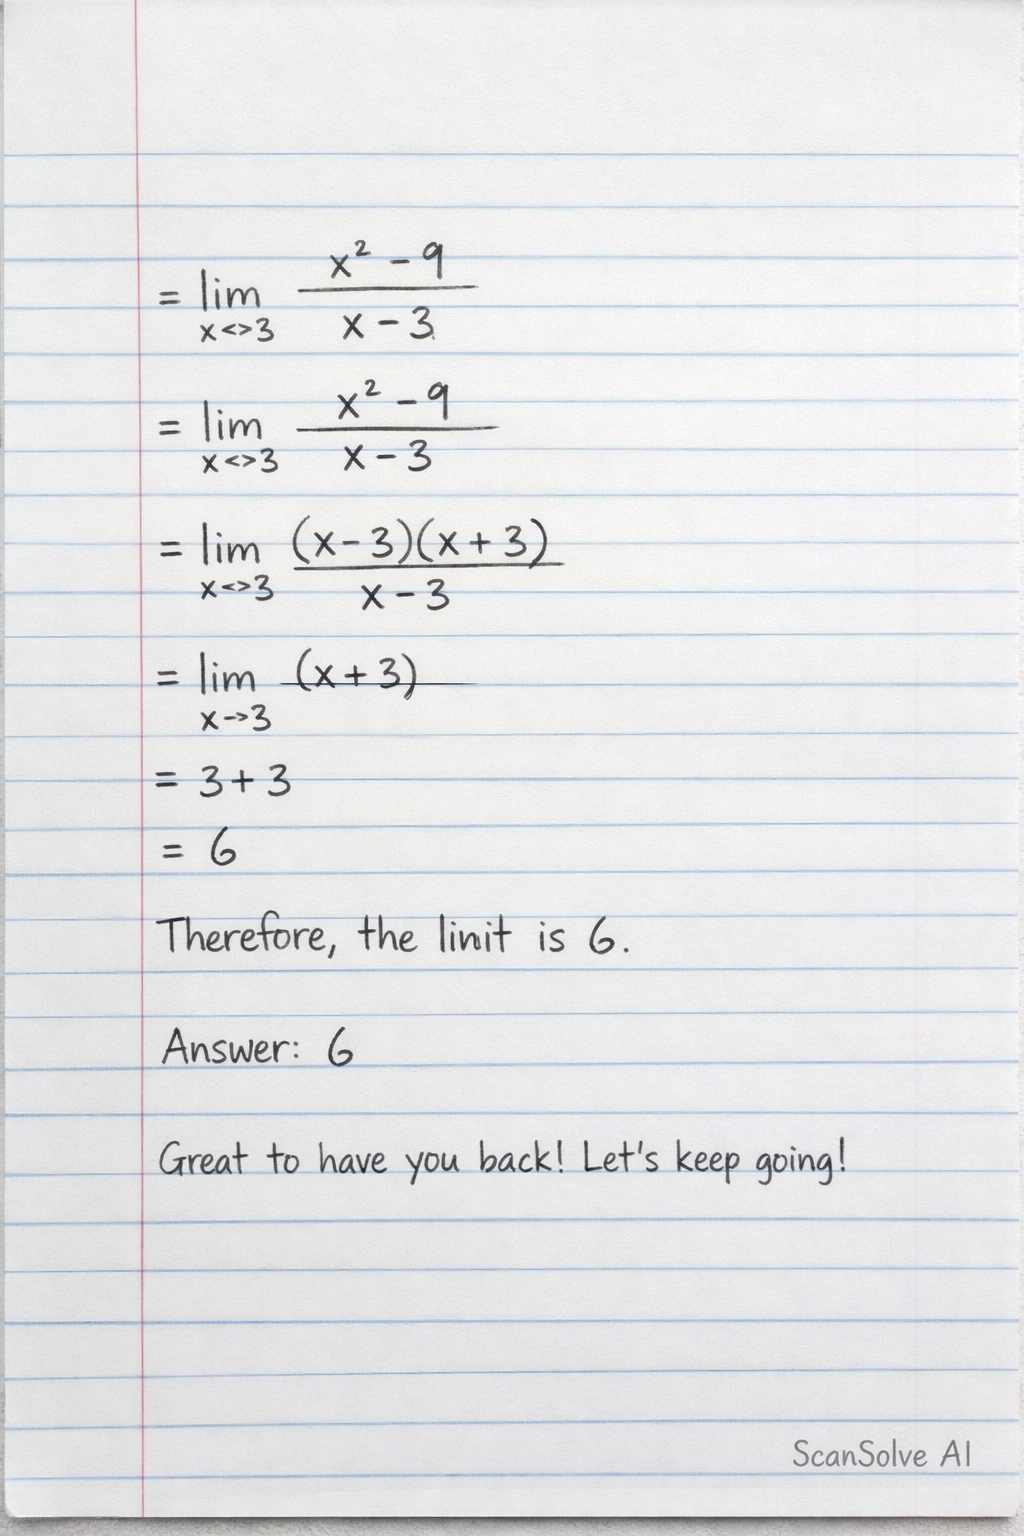 = lim x² - 9
x<>3 x - 3
= lim x² - 9
x<>3 x - 3
= lim (x - 3)(x + 3)
x<>3 x - 3
= lim (x + 3)
x→3
= 3 + 3
= 6
Therefore, the linit is 6.
Answer: 6
Great to have you back! Let's keep going!
ScanSolve AI